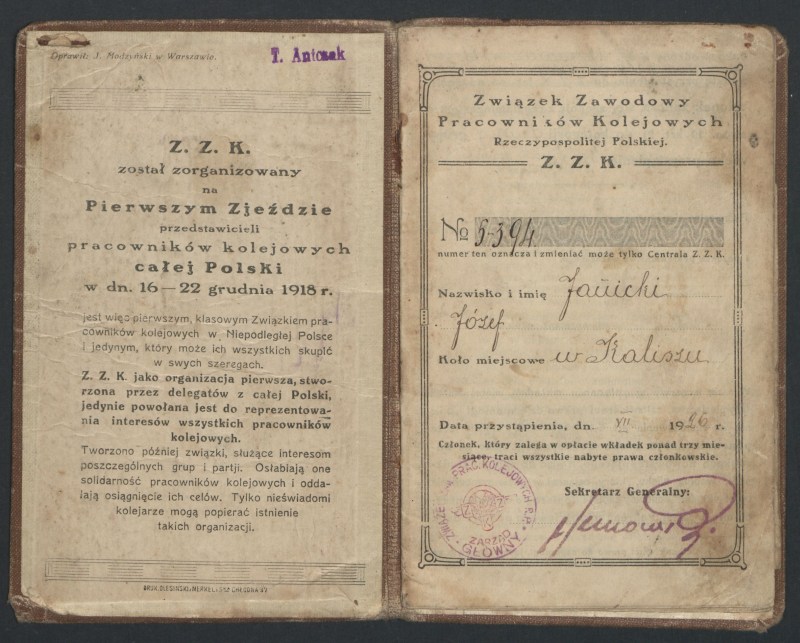 Oprawił: J. Modzyński w Warszawie.
T. Antczak
Z. Z. K.
został zorganizowany
na
Pierwszym Zjeździe
przedstawicieli
pracowników kolejowych
całej Polski
w dn. 16—22 grudnia 1918 r.
jest więc pierwszym, klasowym Związkiem pra-
cowników kolejowych w Niepodległej Polsce
i jedynym, który może ich wszystkich skupić
w swych szeregach.
Z. Z. K. jako organizacja pierwsza, stwo-
rzona przez delegatów z całej Polski,
jedynie powołana jest do reprezentowa-
nia interesów wszystkich pracowników
kolejowych.
Tworzono później związki, służące interesom
poszczególnych grup i partji. Osłabiają one
solidarność pracowników kolejowych i odda-
lają osiągnięcie ich celów. Tylko nieświadomi
kolejarze mogą popierać istnienie
takich organizacji.
Związek Zawodowy
Pracowników Kolejowych
Rzeczypospolitej Polskiej.
Z. Z. K.
№ 5-394
numer ten oznacza i zmieniać może tylko Centrala Z. Z. K.
Nazwisko i imię Janicki
Józef
Koło miejscowe w Kaliszu
Data przystąpienia, dn. VII 1926 r.
Członek, który zalega w opłacie wkładek ponad trzy mie-
siące, traci wszystkie nabyte prawa członkowskie.
Sekretarz Generalny:
PRAC. KOLEJOWYCH R.P.
ZARZĄD
GŁÓWNY